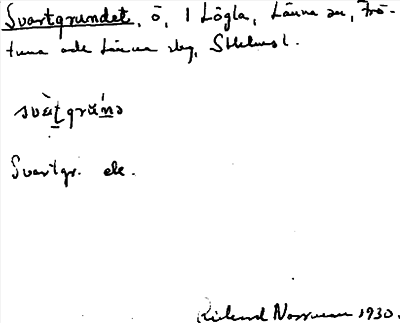 Svartgrundet, ö, 1 Lögla, Länna sn, Frö-
tuna och Länna slg, Sthlms l.
svàʈgrúṇə
Svartgr. ek.
Rickard Norrman 1930.